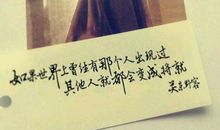 如果世界上曾经有那个人出现过
其他人就都会变成将就